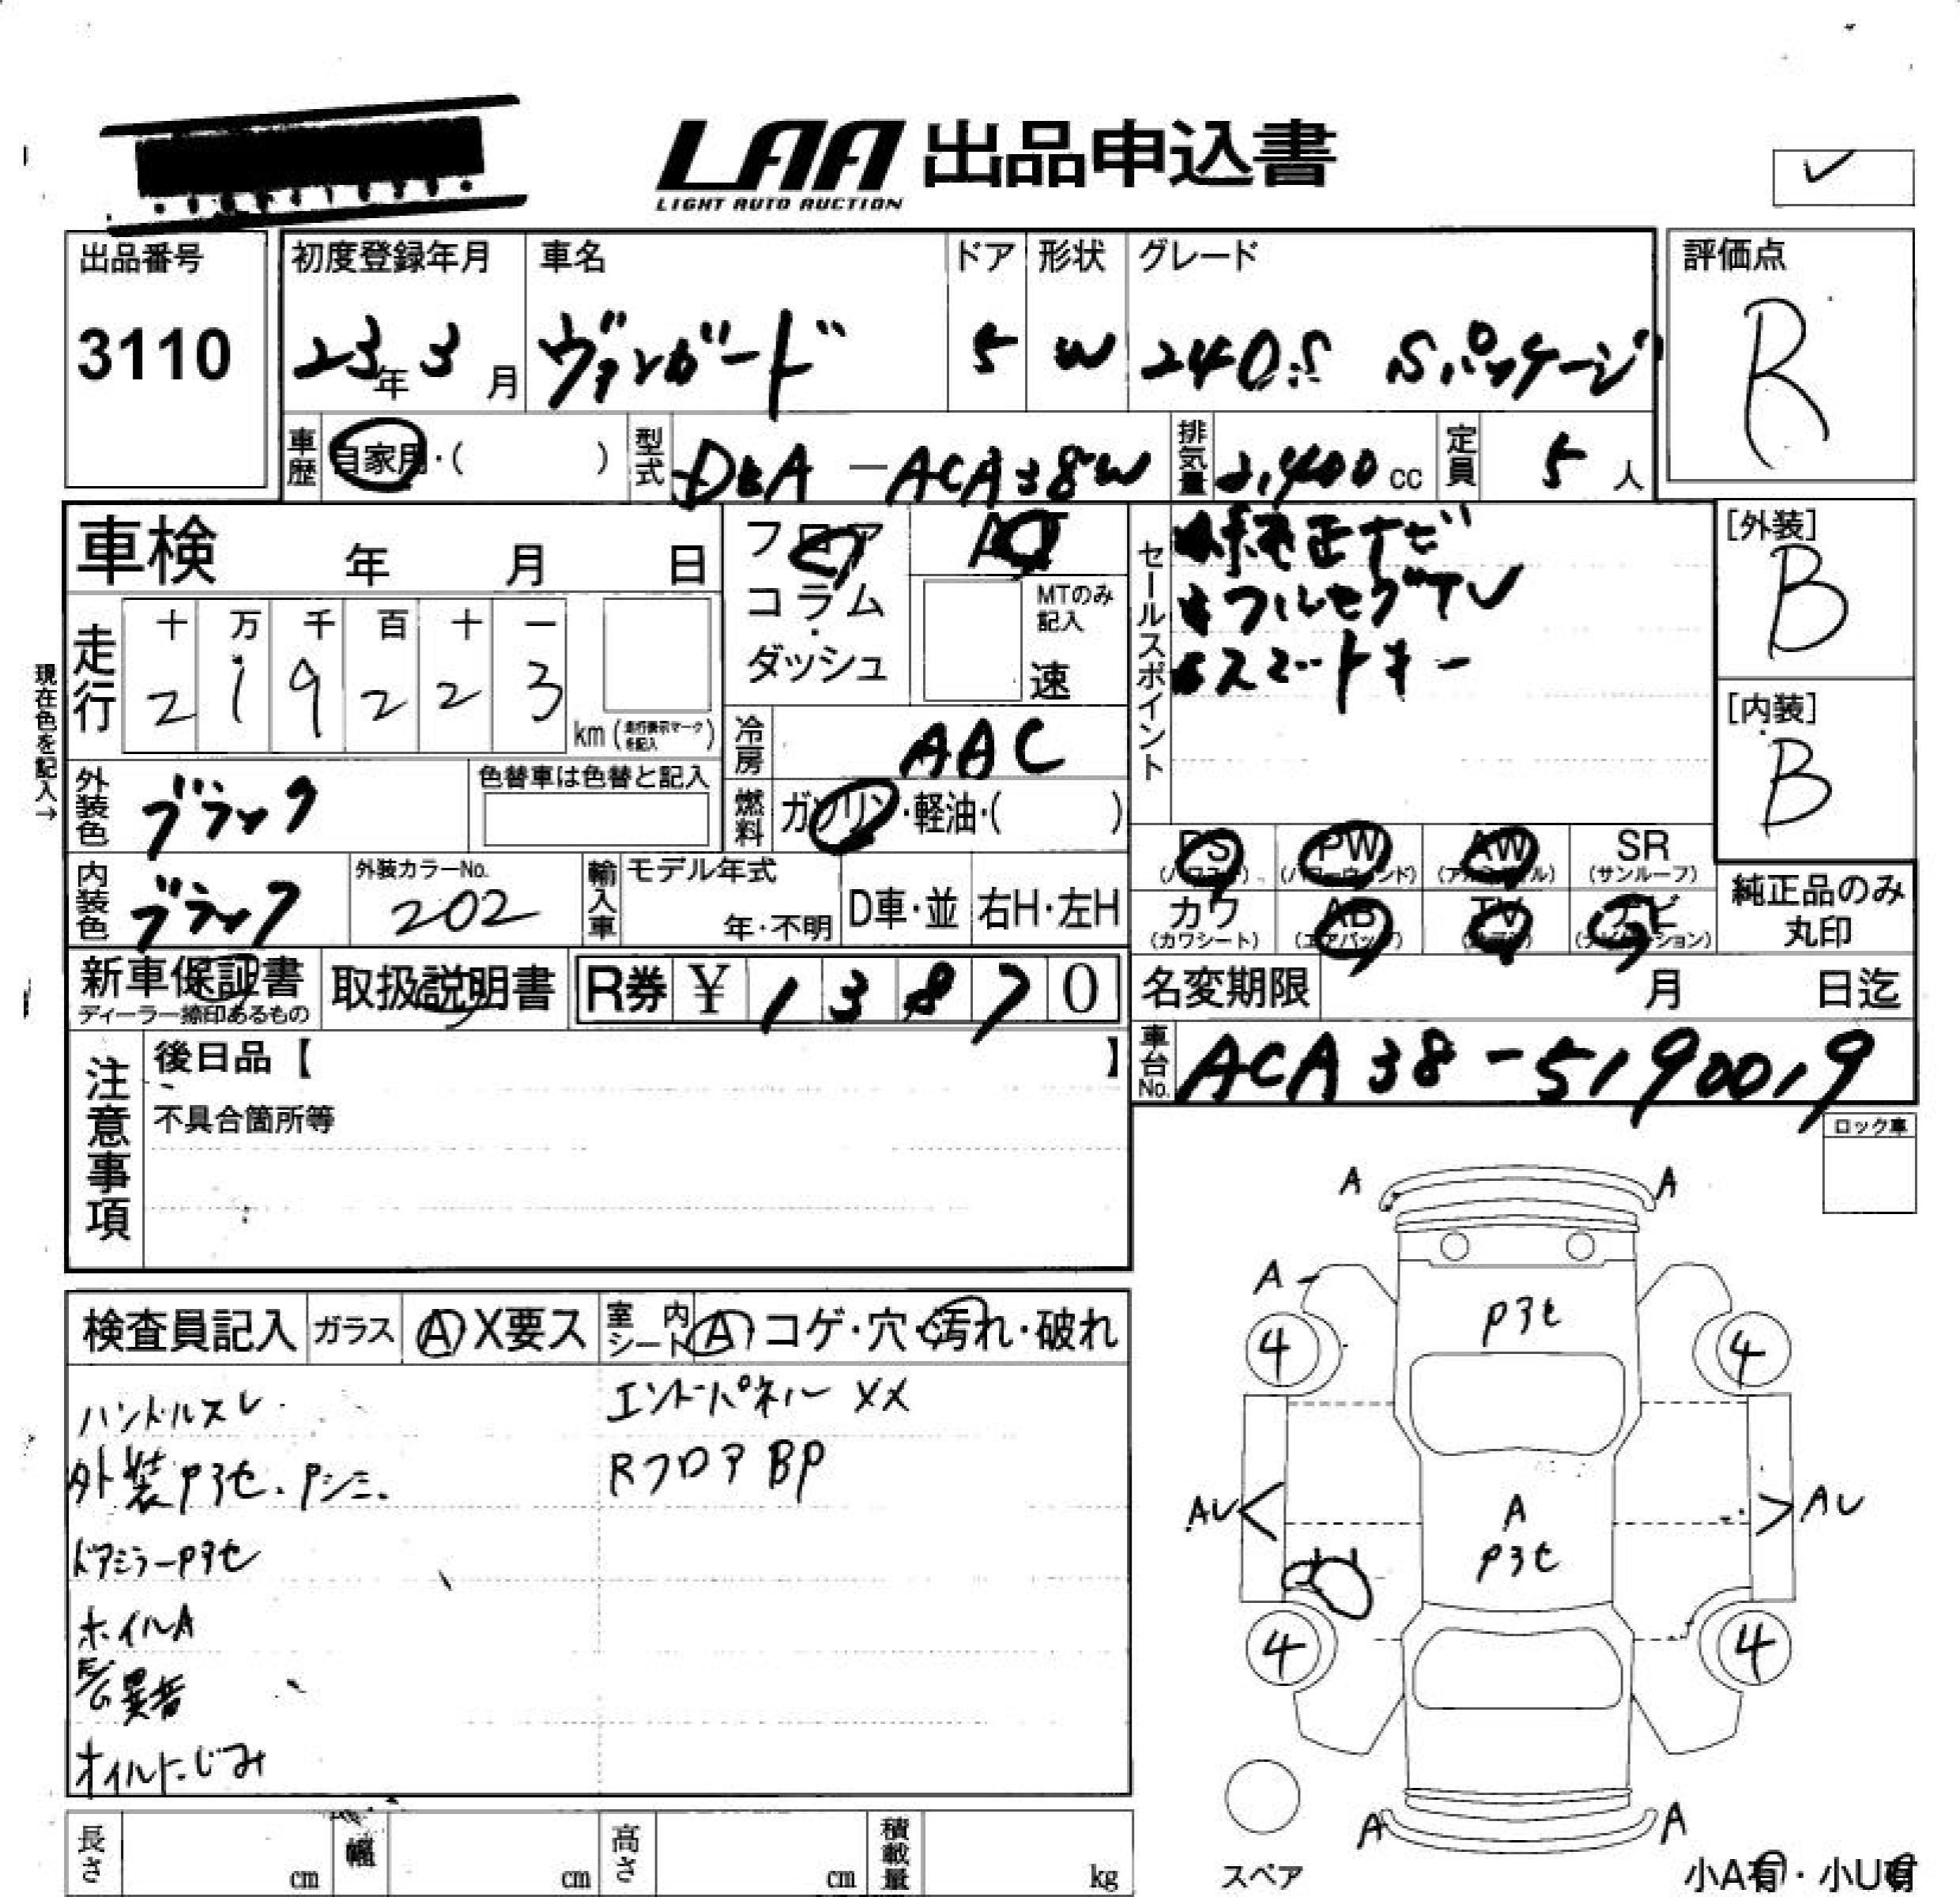 LAA 出品申込書
LIGHT AUTO AUCTION
出品番号
3110
初度登録年月
23年 3月
車名
ヴァンガード
ドア
5
形状
W
グレード
240S Sパッケージ
評価点
R
車歴 自家用・( )
型式 DBA-ACA38W
排気量 2,400 cc
定員 5人
車検 年 月 日
フロア
コラム
・
ダッシュ
AT
MTのみ
記入
速
セールスポイント
純正ナビ
フルセグTV
スマートキー
[外装]
B
[内装]
B
現在色を記入→
走行
十 万 千 百 十 一
2 1 9 2 2 3
km (走行表示マークを記入)
冷房 AAC
燃料 ガソリン・軽油・( )
外装色 ブラック
色替車は色替と記入
内装色 ブラック
外装カラーNo.
202
輸入車
モデル年式
年・不明
D車・並
右H・左H
PS PW AW SR
(パワステ) (パワーウィンド) (アルミホイル) (サンルーフ)
カワ AB TV ナビ
(カワシート) (エアバッグ) (ナビゲーション)
純正品のみ
丸印
新車保証書
ディーラー捺印あるもの
取扱説明書
R券 ¥ 1 3 8 7 0
名変期限 月 日迄
車台No. ACA38-5190019
注意事項
後日品【 】
不具合箇所等
ロック車
検査員記入
ガラス A X要ス
室内シート A コゲ・穴・汚れ・破れ
ハンドルスレ
外装Pヨセ.Pシミ.
ドアミラーPヨセ
ホイルA
異音
オイルにじみ
エンドパネル XX
Rフロア BP
A A
A
Pヨセ
4 4
AU A AU
Pヨセ
4 4
A A
スペア
小A有・小U有
長さ cm
幅 cm
高さ cm
積載量 kg